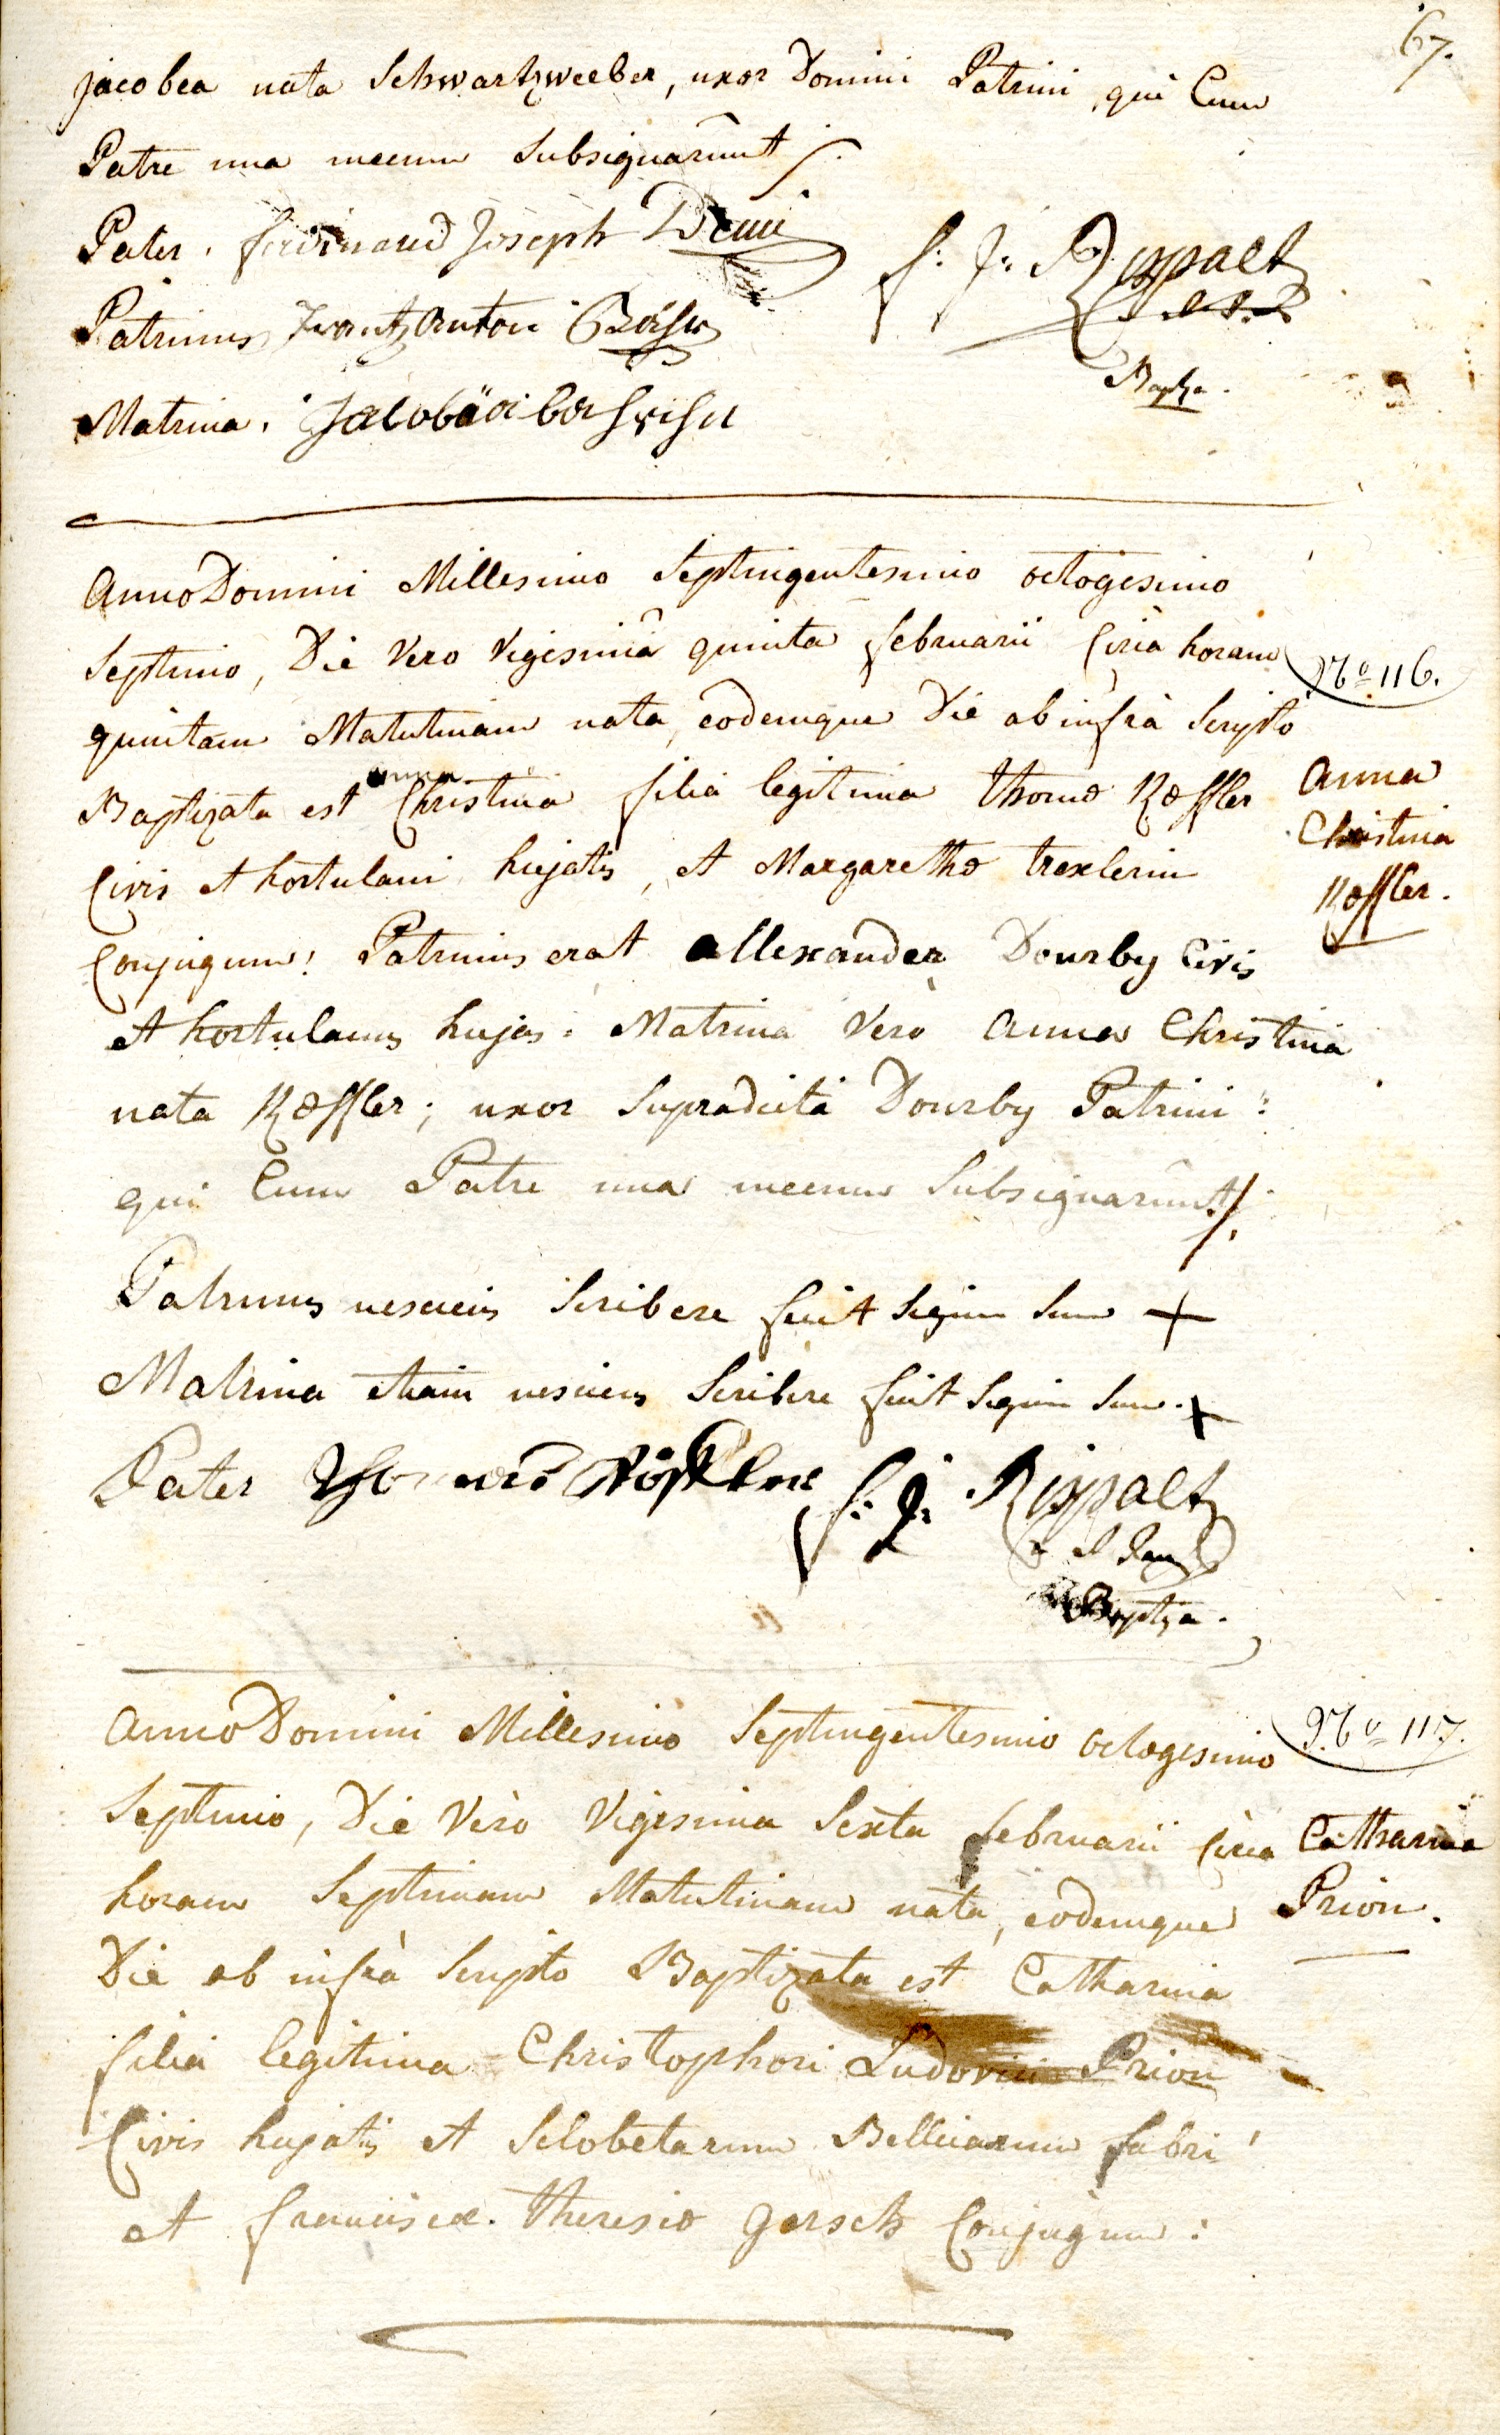 67.
jacobea nata Schwartzweeber, uxor Domini Patrini, qui Cum
Patre una mecum Subsignarunt /.
Pater. ferdinand Joseph
Patrinus Frantz Anton
f: J: Rippalt
Baptza.
Matrina. Jacobäa
Anno Domini Millesimo Septingentesimo octogesimo
Septimo, Die Vero Vigesimâ quinta februarii Circa horam
quintam Matutinam nata, eodemque Die ab infrà Scripto
Baptizata est anna Christina filia legitima thomæ Kæffler
Civis et hortulani hujatis, et Margarethæ trexlerin
Conjugum: Patrinus erat allexander Dourby Civis
et hortulanus hujas: Matrina Vero anna Christina
nata Kæffler; uxor Supradicti Dourby Patrini:
qui Cum Patre una mecum Subsignarunt /.
Patrinus nesciens Scribere fecit Signum Suum +
Matrina etiam nesciens Scribere fecit Signum Suum. +
Pater Thomas
f: J: Rippalt
Baptza.
No 116.
Anna
Christina
Kæffler.
Anno Domini Millesimo Septingentesimo octogesimo
Septimo, Die Vero Vigesima Sexta februarii Circa
horam Septimam Matutinam nata, eodemque
Die ab infrà Scripto Baptizata est Catharina
filia legitima Christophori Ludovici Prion
Civis hujatis et Sclobetarum Bellicarum fabri
et franciscæ theresiæ gersch Conjugum:
No 117.
Catharina
Prion.